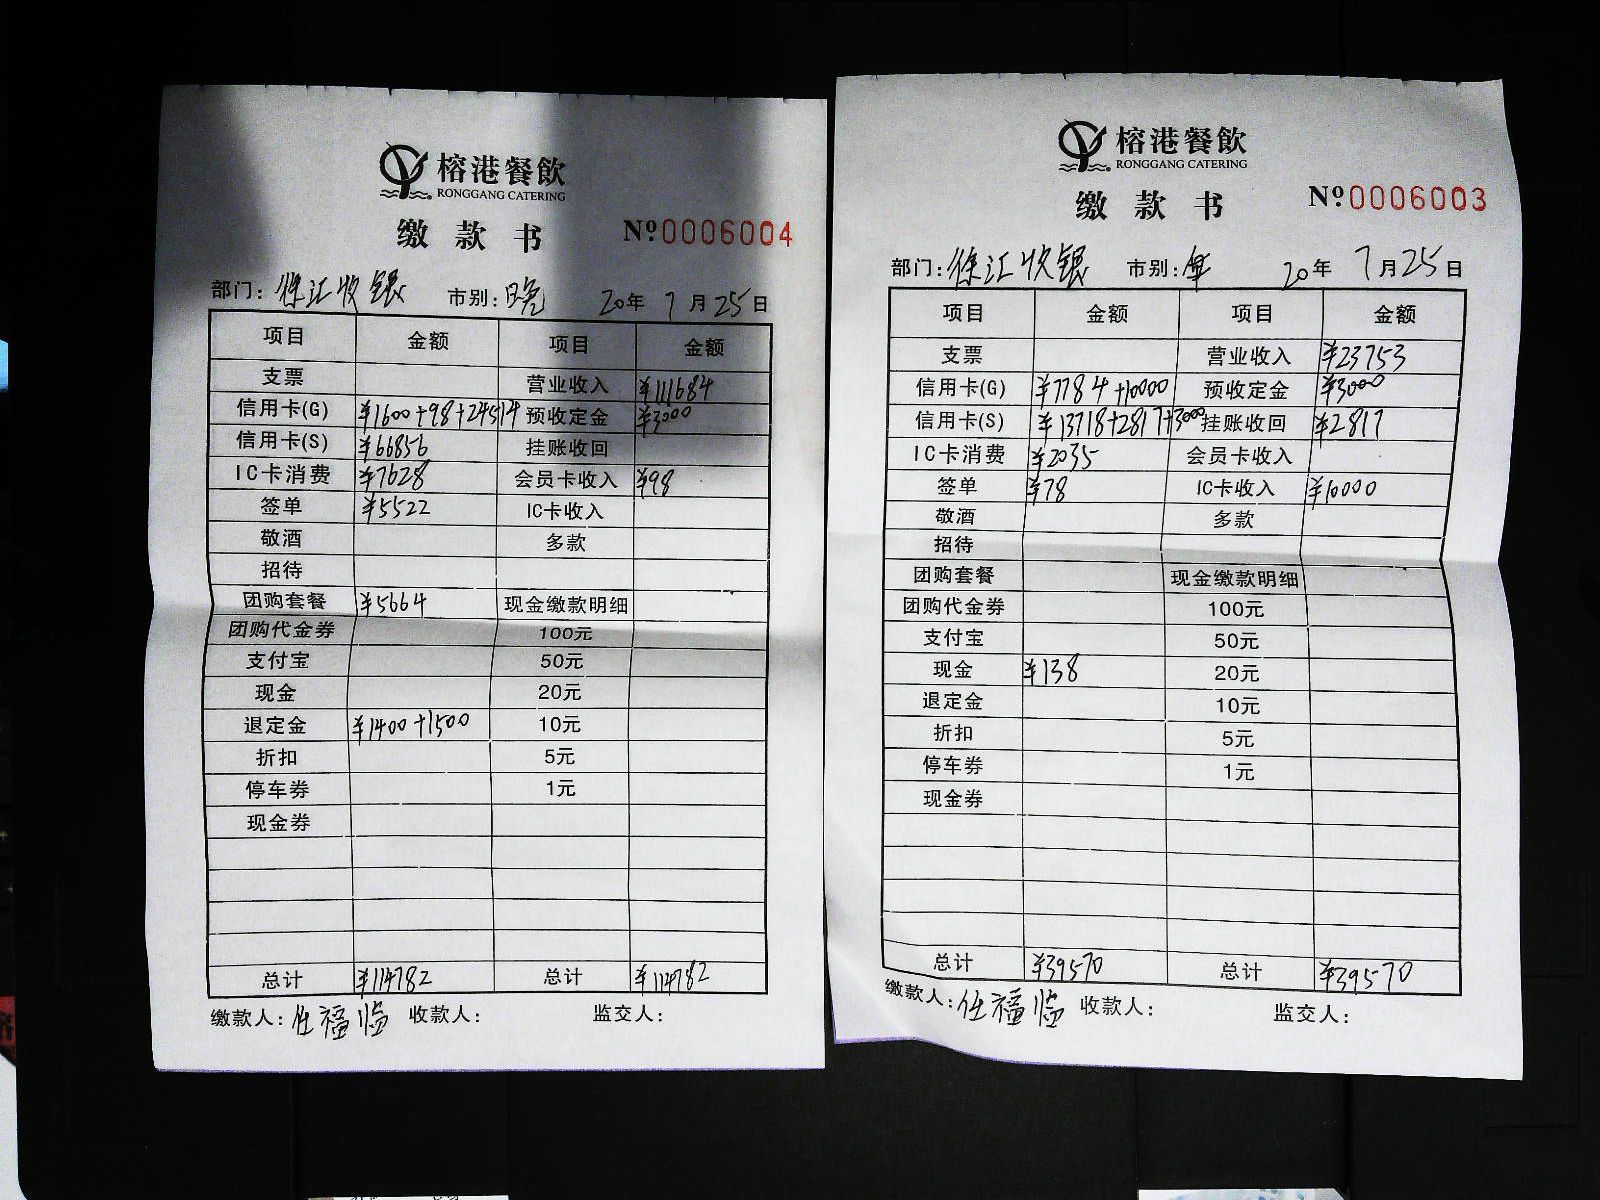 榕港餐飲
RONGGANG CATERING
缴款书 №0006004
部门：徐汇收银 市别：晚 20年 7月25日
项目 金额 项目 金额
支票 营业收入 ¥111684
信用卡(G) ¥1600+98+24514 预收定金 ¥3000
信用卡(S) ¥66856 挂账收回
IC卡消费 ¥7628 会员卡收入 ¥98
签单 ¥5522 IC卡收入
敬酒 多款
招待
团购套餐 ¥5664 现金缴款明细
团购代金券 100元
支付宝 50元
现金 20元
退定金 ¥1400+1500 10元
折扣 5元
停车券 1元
现金券
总计 ¥114782 总计 ¥114782
缴款人：任福临 收款人： 监交人：
榕港餐飲
RONGGANG CATERING
缴款书 №0006003
部门：徐汇收银 市别： 20年 7月25日
项目 金额 项目 金额
支票 营业收入 ¥23753
信用卡(G) ¥7784+10000 预收定金 ¥3000
信用卡(S) ¥13718+2817+3000 挂账收回 ¥2817
IC卡消费 ¥2035 会员卡收入
签单 ¥78 IC卡收入 ¥10000
敬酒 多款
招待
团购套餐 现金缴款明细
团购代金券 100元
支付宝 50元
现金 ¥138 20元
退定金 10元
折扣 5元
停车券 1元
现金券
总计 ¥39570 总计 ¥39570
缴款人：任福临 收款人： 监交人：